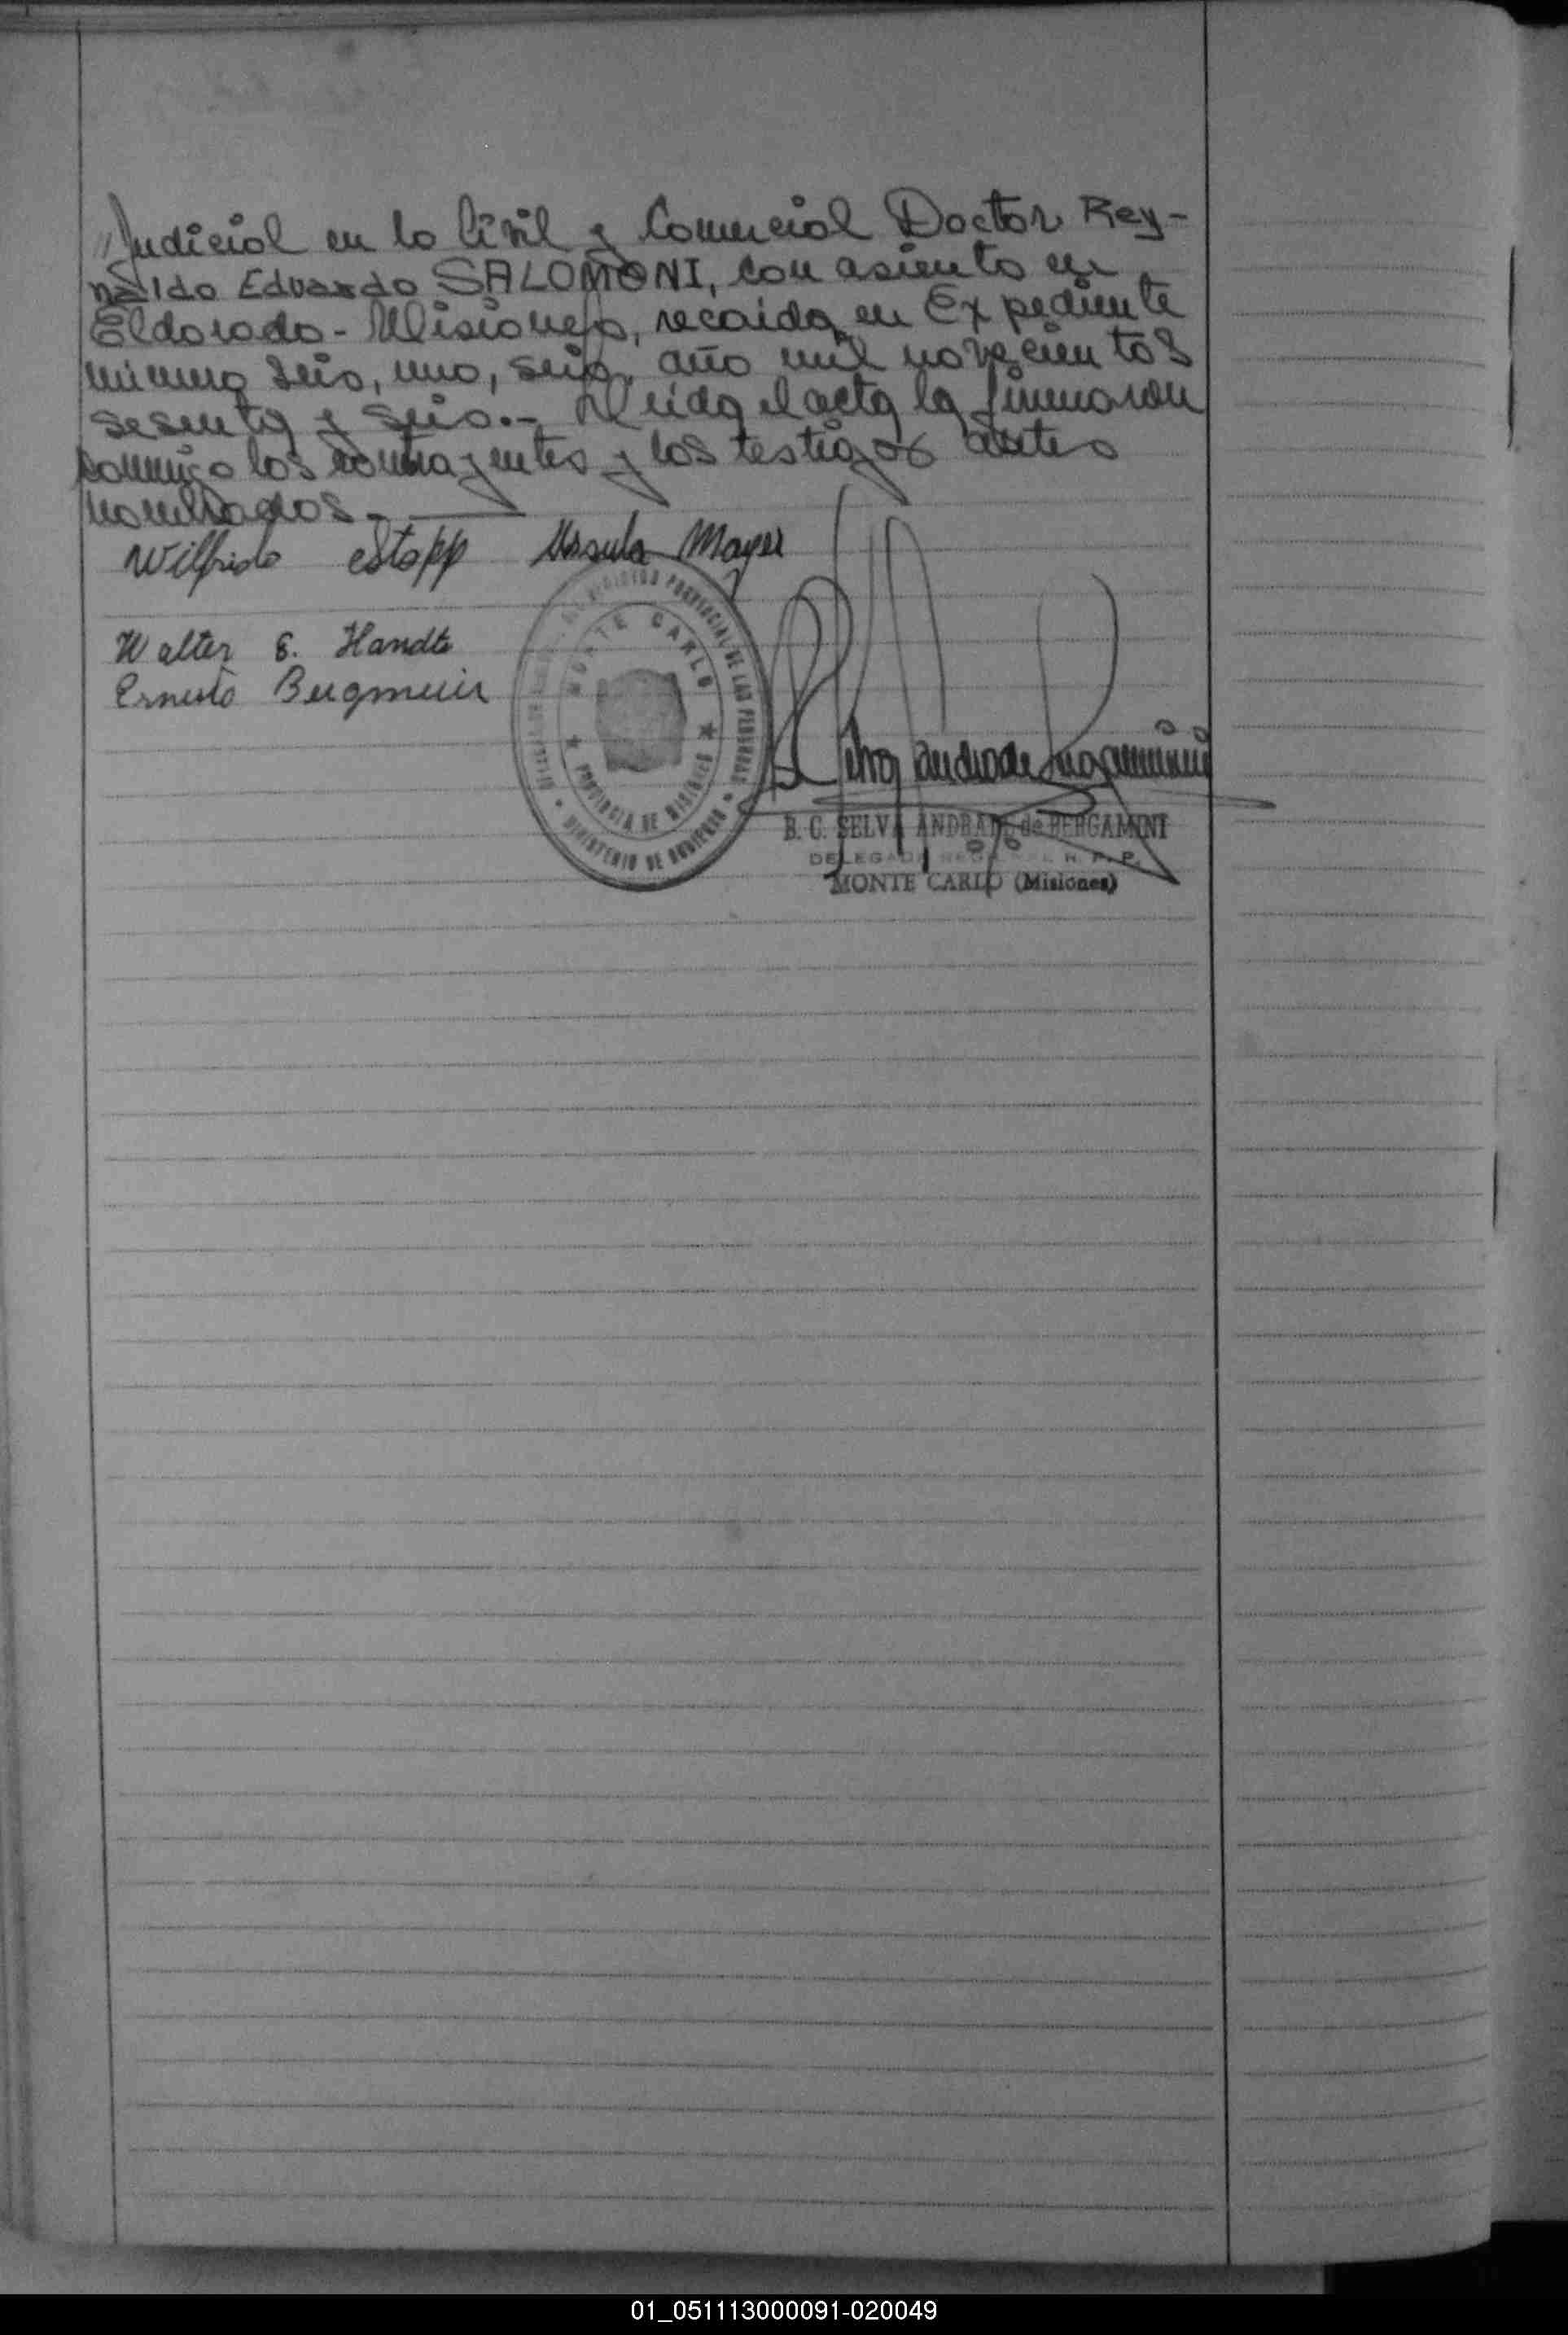 Judicial en lo Civil y Comercial Doctor Rey-
naldo Eduardo SALOMONI, con asiento en
Eldorado - Misiones, recaída en Expediente
número seis, uno, seis, año mil novecientos
sesenta y seis.- Leída el acta la firmaron
conmigo los contrayentes y los testigos antes
nombrados.-
Wilfrido Stapp Ursula Mayer
Walter E. Handte
Ernesto Bergmeier
MONTE CARLO
PROVINCIA DE MISIONES
REGISTRO PROVINCIAL DE LAS PERSONAS
MINISTERIO DE GOBIERNO
Selva Andrade de Bergamini
B. C. SELVA ANDRADE de BERGAMINI
DELEGADA R. P. P.
MONTE CARLO (Misiones)
01_051113000091-020049